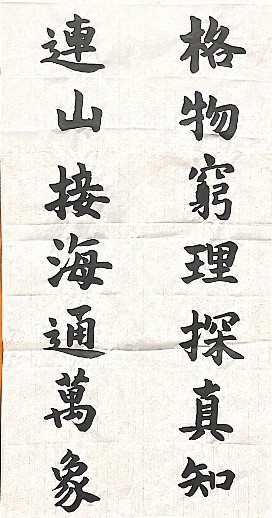 格物窮理探真知
連山接海通萬象